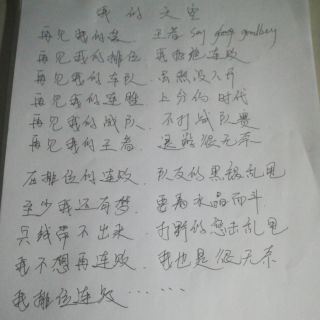 我的天空
再见我的爱 王者 say good goodbey
再见我的排位 我拒绝连败
再见我的车队 虽然没人开
再见我的连胜 上分的时代
再见我的战队 不打战队赛
再见我的王者 退路很无奈
在排位的连败 队友的黑锅乱甩
至少我还有梦 要为水晶而斗
兵线带不出来 打野的惩击乱甩
我不想再连败 我也是很无奈
我排位连败……